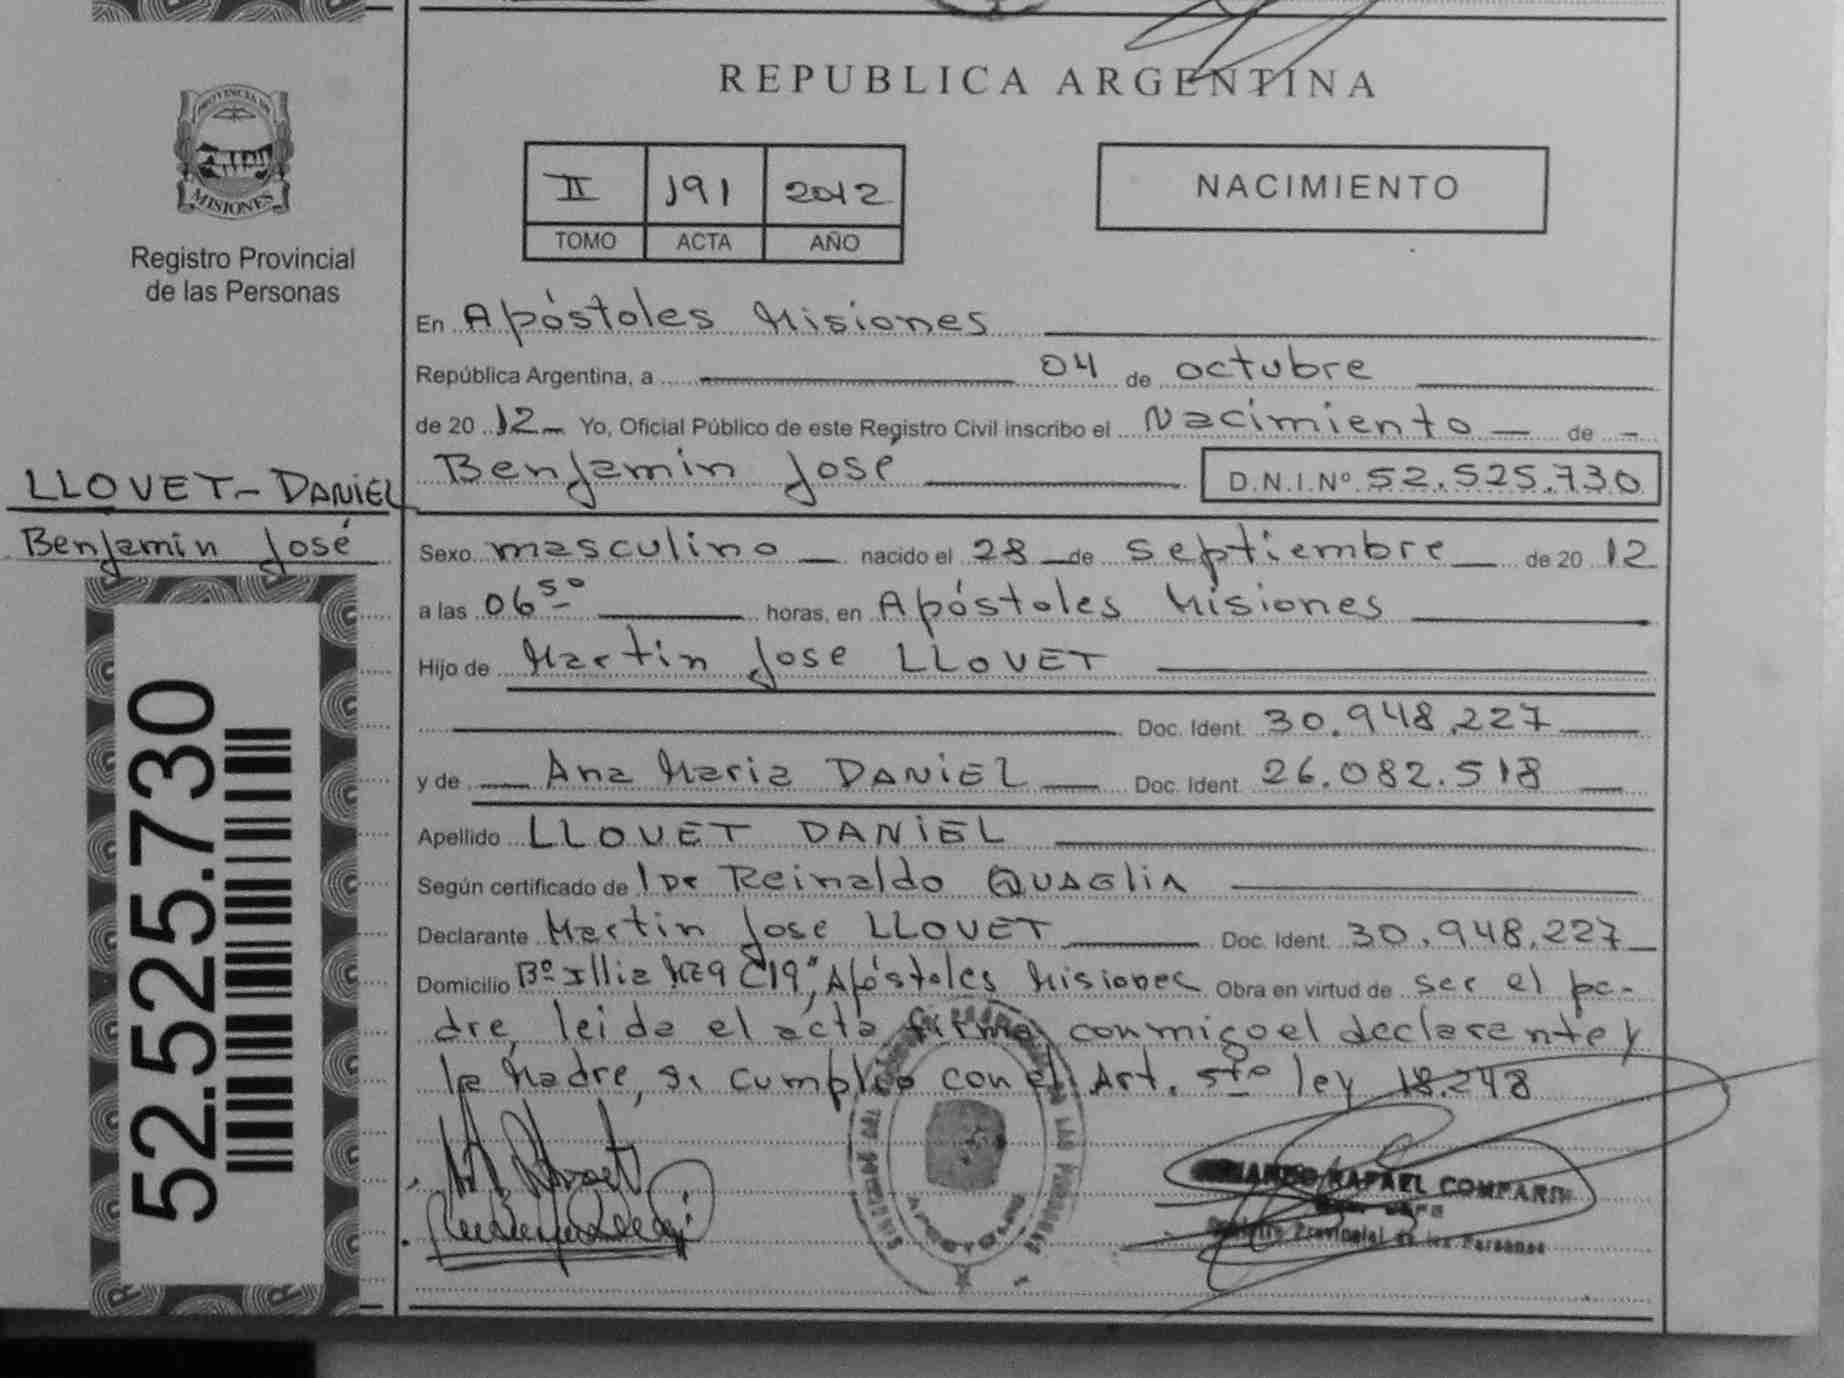 REPUBLICA ARGENTINA
PROVINCIA DE
MISIONES
Registro Provincial
de las Personas
II 191 2012
TOMO ACTA AÑO
NACIMIENTO
En Apóstoles Misiones
República Argentina, a 04 de octubre
de 20 12 Yo, Oficial Público de este Registro Civil inscribo el Nacimiento de
LLOVET-DANIEL
Benjamin José
Benjamin José D.N.I.Nº 52.525.730
Sexo masculino nacido el 28 de septiembre de 20 12
a las 06 50 horas, en Apóstoles Misiones
Hijo de Martin Jose LLOVET
Doc. Ident. 30.948.227
y de Ana Maria DANIEL Doc. Ident 26.082.518
Apellido LLOVET DANIEL
Según certificado de 1 Dr Reinaldo QUAGLIA
Declarante Martin Jose LLOVET Doc. Ident. 30.948.227
Domicilio Bº Illia Mz9 C19", Apóstoles Misiones Obra en virtud de ser el pa-
dre, leida el acta firma conmigo el declarante y
la Madre, se cumplió con el Art. 5to ley 18.248
52.525.730
APOSTOLES
RAFAEL COMPARIN
Registro Provincial de las Personas